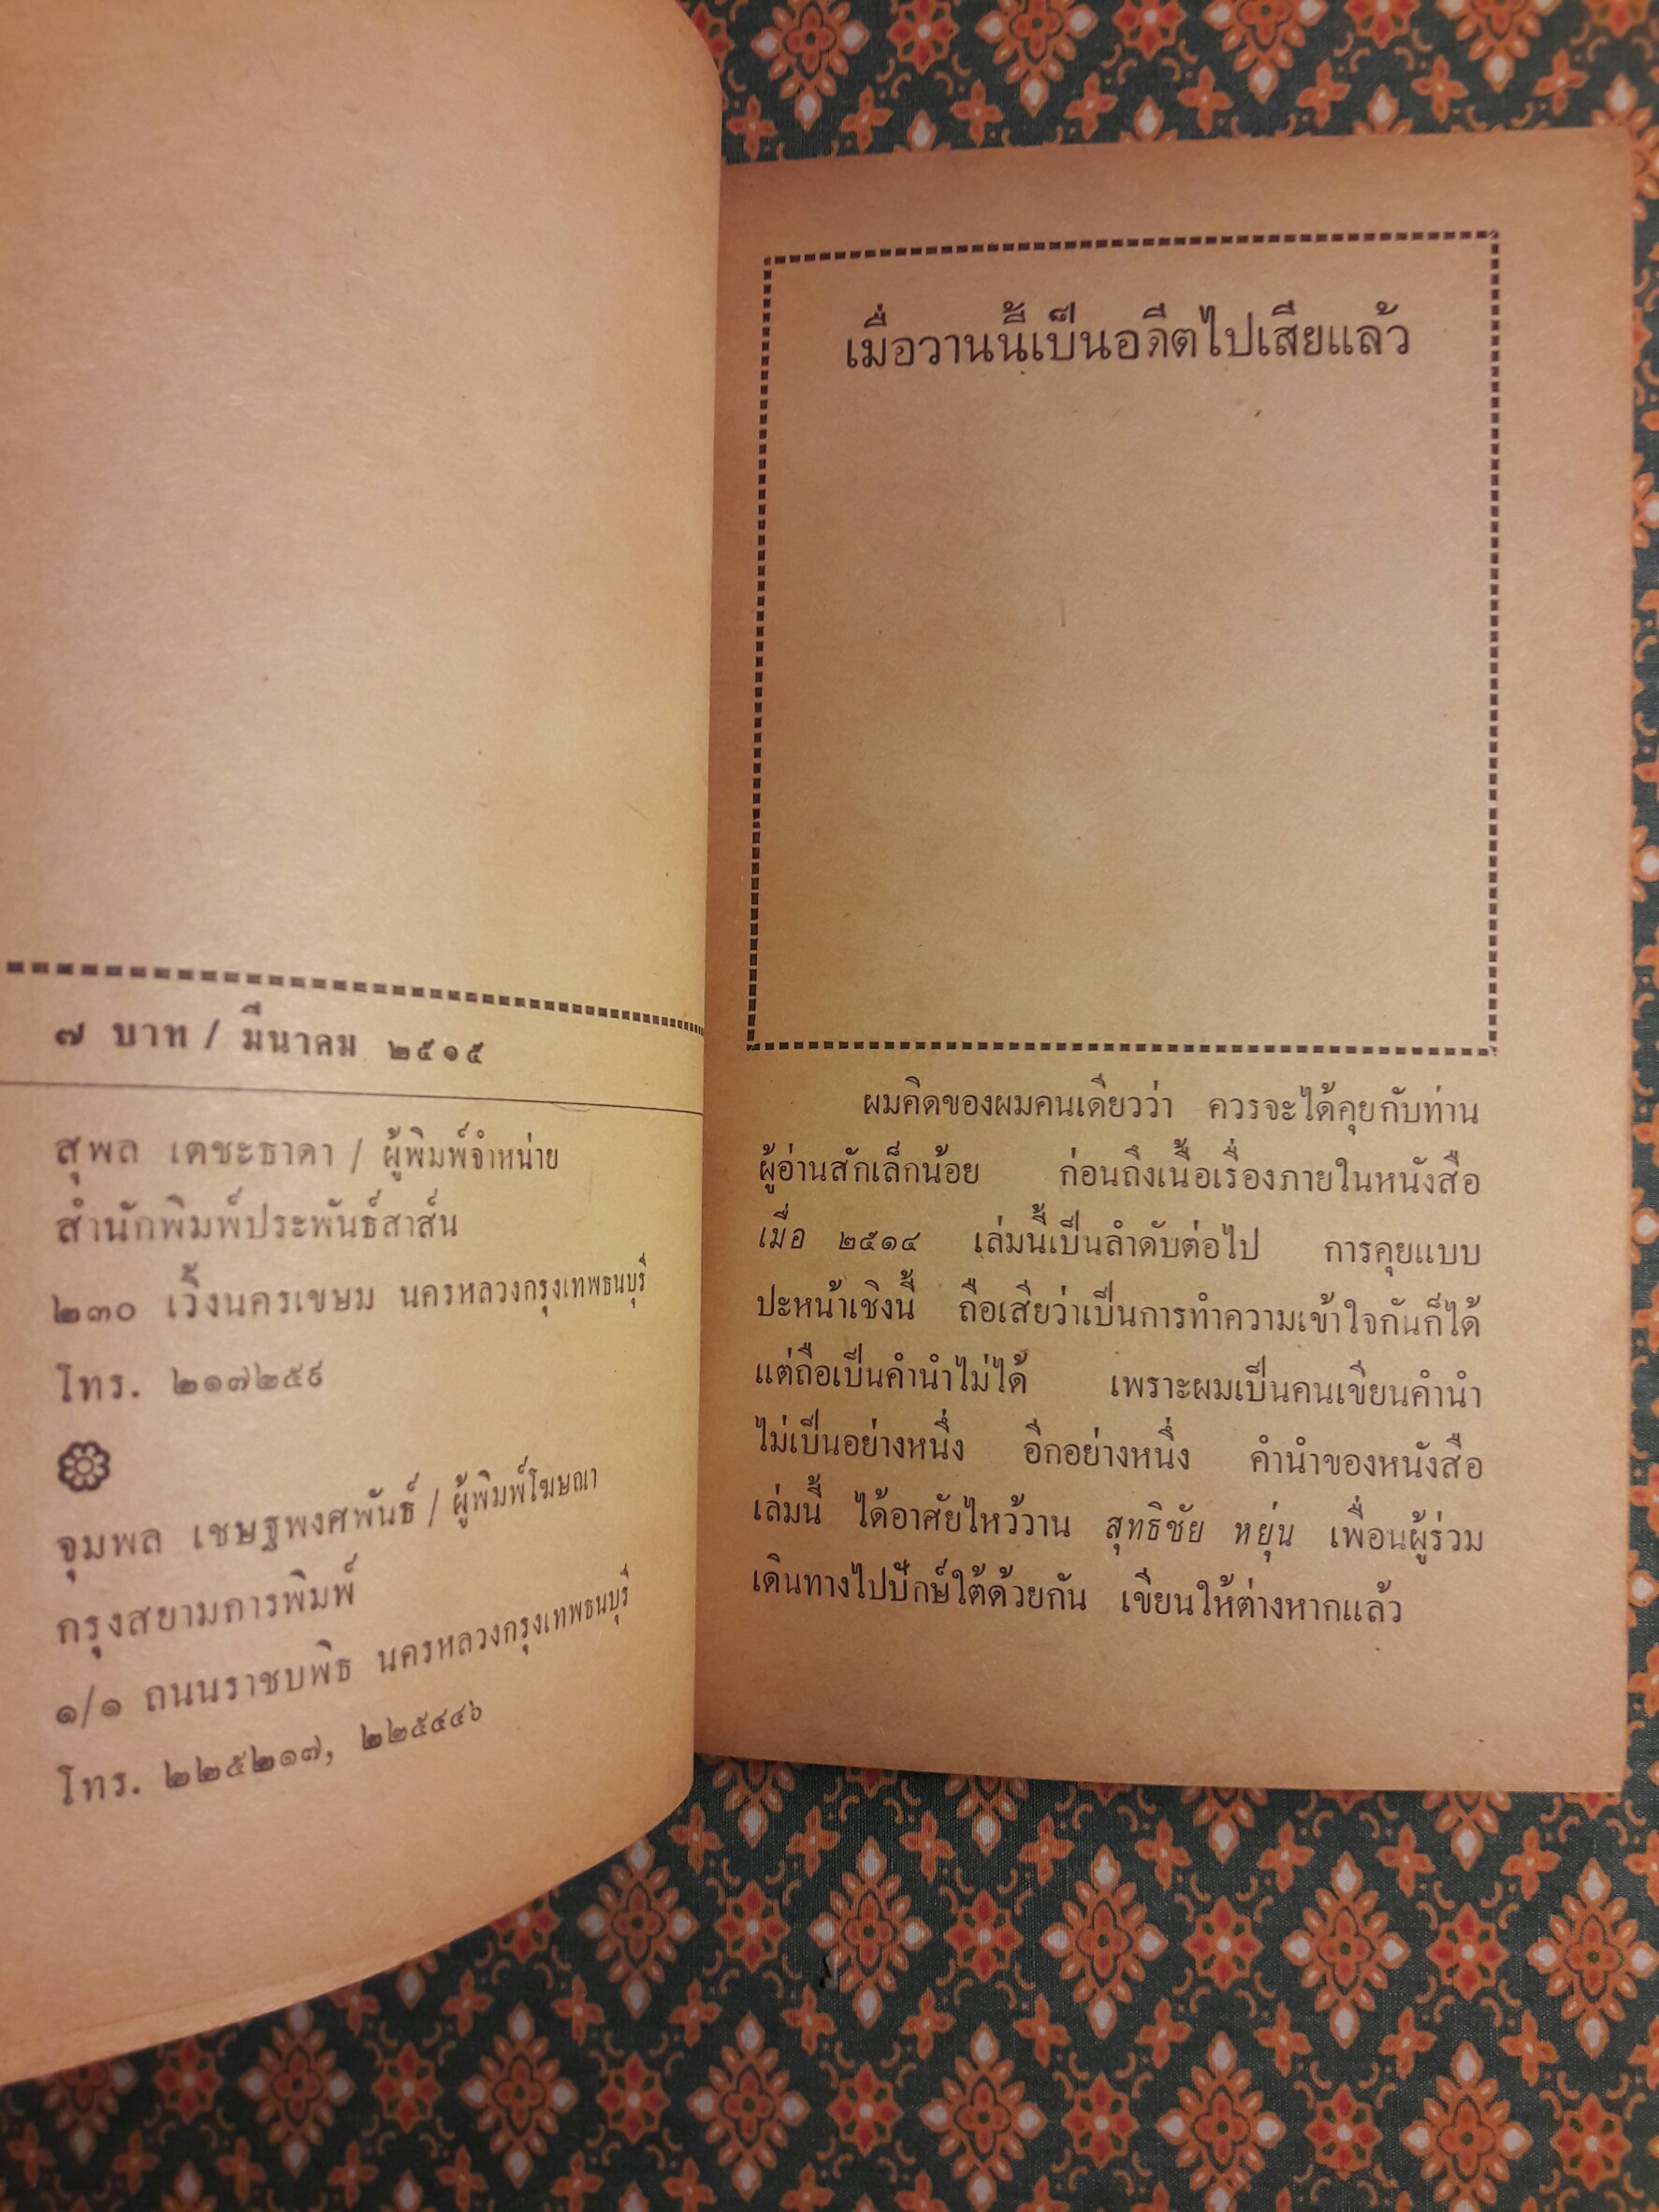 ๗ บาท / มีนาคม ๒๕๑๕
สุพล เตชะธาดา / ผู้พิมพ์จำหน่าย
สำนักพิมพ์ประพันธ์สาส์น
๒๓๐ เวิ้งนครเขษม นครหลวงกรุงเทพธนบุรี
โทร. ๒๑๗๒๕๙
จุมพล เชษฐพงศพันธ์ / ผู้พิมพ์โฆษณา
กรุงสยามการพิมพ์
๑/๑ ถนนราชบพิธ นครหลวงกรุงเทพธนบุรี
โทร. ๒๒๕๒๑๗, ๒๒๕๔๔๖
เมื่อวานนี้เป็นอดีตไปเสียแล้ว
ผมคิดของผมคนเดียวว่า ควรจะได้คุยกับท่าน
ผู้อ่านสักเล็กน้อย ก่อนถึงเนื้อเรื่องภายในหนังสือ
เมื่อ ๒๕๑๔ เล่มนี้เป็นลำดับต่อไป การคุยแบบ
ปะหน้าเชิงนี้ ถือเสียว่าเป็นการทำความเข้าใจกันก็ได้
แต่ถือเป็นคำนำไม่ได้ เพราะผมเป็นคนเขียนคำนำ
ไม่เป็นอย่างหนึ่ง อีกอย่างหนึ่ง คำนำของหนังสือ
เล่มนี้ ได้อาศัยไหว้วาน สุทธิชัย หยุ่น เพื่อนผู้ร่วม
เดินทางไปปักษ์ใต้ด้วยกัน เขียนให้ต่างหากแล้ว